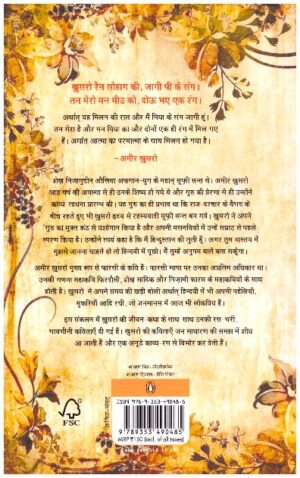 खुसरो रैन सोहाग की, जागी पी के संग।
तन मेरो मन पीउ को, दोऊ भए एक रंग।
अर्थात् यह मिलन की रात और मैं पिया के संग जागी हूं।
तन मेरा है और मन पिया का और दोनों एक ही रंग में मिल गए
हैं। अर्थात आत्मा का परमात्मा के साथ मिलन हो गया है।
– अमीर खुसरो
शेख निजामुद्दीन औलिया अफगान-युग के महान् सूफी सन्त थे। अमीर खुसरो
आठ वर्ष की अवस्था से ही उनके शिष्य हो गये थे और गुरु की प्रेरणा से ही उन्होंने
काव्य साधना प्रारम्भ की। यह गुरु का प्रभाव ही था कि राज-दरबार के वैभव के
बीच रहते हुए भी खुसरो हृदय से रहस्यवादी सूफी सन्त बन गये। खुसरो ने अपने
गुरु का मुक्त कंठ से यशोगान किया है और अपनी मसनवियों में उन्हें सम्राट से पहले
स्मरण किया है। उन्होंने स्वयं कहा है कि मैं हिन्दुस्तान की तूती हूं। अगर तुम वास्तव में
मुझसे जानना चाहते हो तो हिन्दवी में पूछो। मैं तुम्हें अनुपम बातें बता सकूँगा।
अमीर खुसरो मुख्य रूप से फारसी के कवि हैं। फारसी भाषा पर उनका अप्रतिम अधिकार था।
उनकी गणना महाकवि फिरदौसी, शेख सादिक और निजामी फारस के महाकवियों के साथ
होती है। खुसरो ने अपने समय की खड़ी बोली अर्थात् हिन्दवी में भी अपनी पहेलियाँ,
मुकरियाँ आदि रची, जो जनमानस में आज भी लोकप्रिय हैं।
इस संकलन में खुसरो की जीवन-कथा के साथ साथ उनकी रस-भरी,
भावभीनी कविताएँ दी गई हैं। खुसरो की कविताएँ जन साधारण की समझ में शीघ्र
आ जाती हैं और एक अनूठे काव्य-रस से विभोर कर देती हैं।
FSC
ISBN 978-9-353-49048-5
9789353490485
MRP ₹150 (incl. of all taxes)